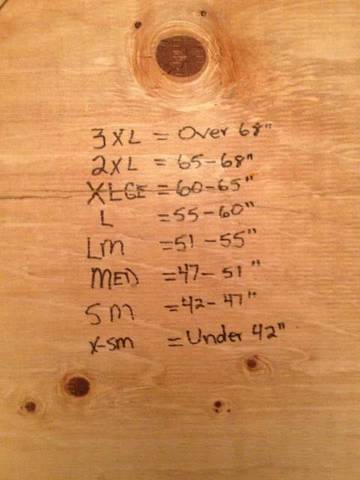 3XL = Over 68"
2XL = 65-68"
XLGE = 60-65"
L = 55-60"
Lm = 51-55"
MED = 47-51"
Sm = 42-47"
X-sm = Under 42"